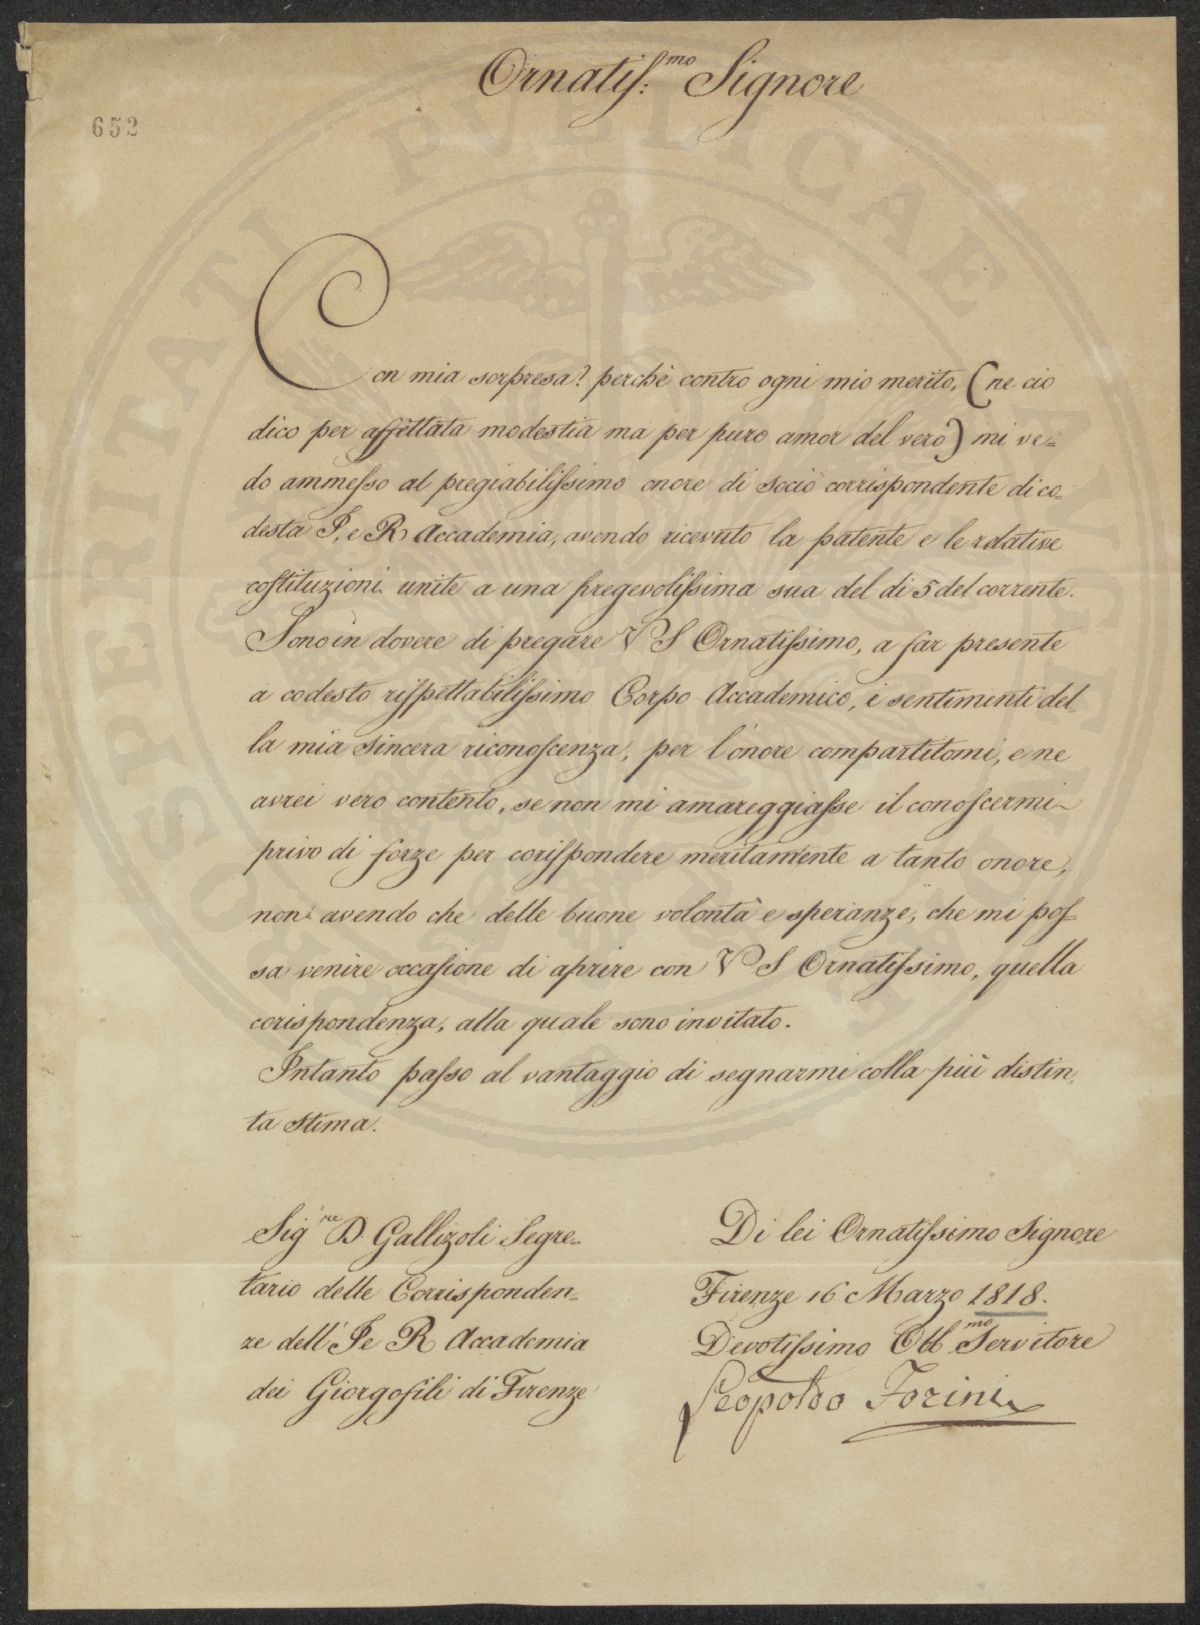 Ornatiss:mo Signore
652
Con mia sorpresa? perchè contro ogni mio merito, (ne cio
dico per affettata modestia ma per puro amor del vero) mi ve=
do ammesso al pregiabilissimo onore di socio corrispondente di co-
desta I, e R Accademia, avendo ricevuto la patente e le relative
costituzioni unite a una pregevolissima sua del di 5 del corrente.
Sono in dovere di pregare V S Ornatissimo, a far presente
a codesto rispettabilissimo Corpo Accademico, i sentimenti del-
la mia sincera riconoscenza, per l'onore compartitomi, e ne
avrei vero contento, se non mi amareggiasse il conoscermi
privo di forze per corispondere meritamente a tanto onore,
non avendo che delle buone volontà e speranze, che mi pos-
sa venire occasione di aprire con V S Ornatissimo, quella
corispondenza, alla quale sono invitato.
Intanto passo al vantaggio di segnarmi colla più distin-
ta stima.
Sig.re D. Gallizoli Segre=
tario delle Corrisponden=
ze dell' I e R Accademia
dei Giorgofili di Firenze
Di lei Ornatissimo Signore
Firenze 16 Marzo 1818.
Devotissimo Obbmo Servitore
Leopoldo Forini
PROSPERITATI PVBLICAE